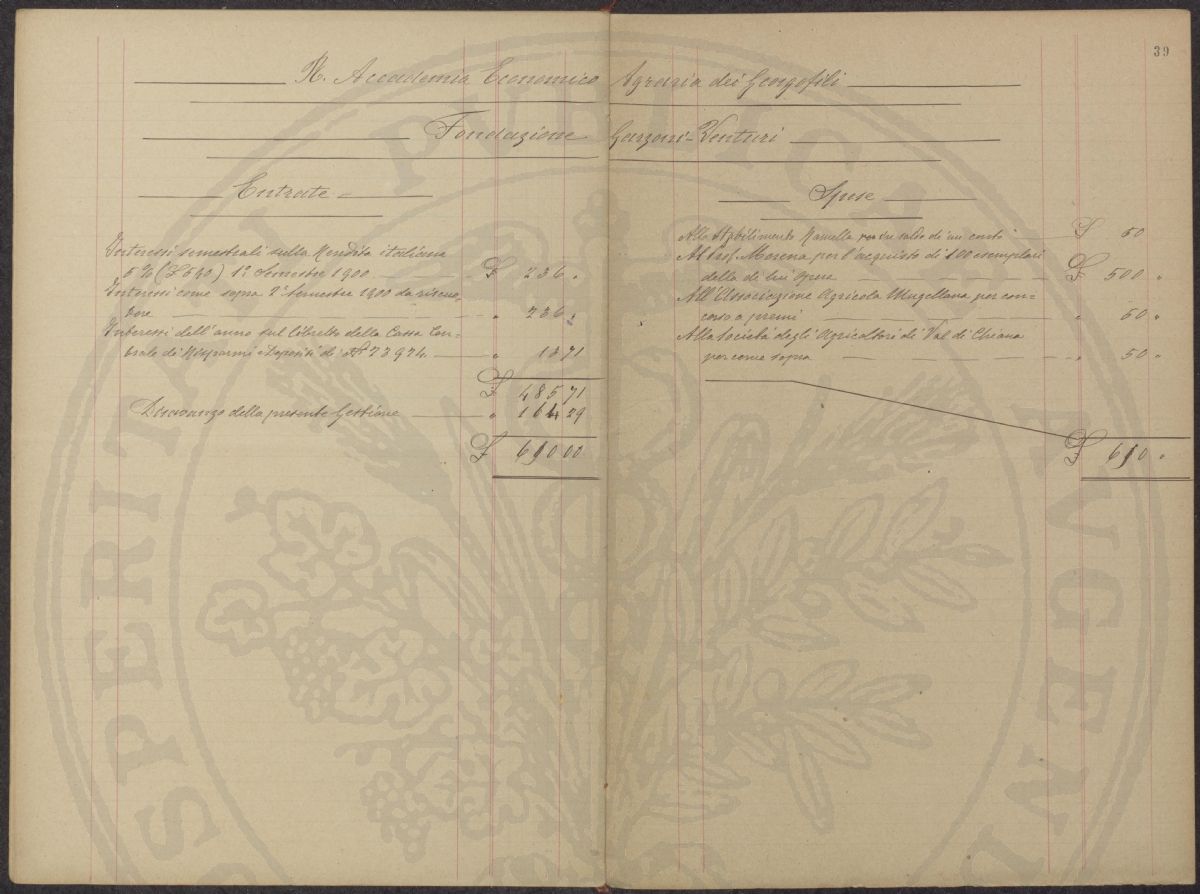 39
R. Accademia Economico Agraria dei Georgofili
Fondazione Garzoni-Venturi
Entrate
Interessi semestrali sulla Rendita italiana
5% (£ 590) 1° Semestre 1900 £ 236 "
Interessi come sopra 2° Semestre 1900 da riscuo-
tere " 236 "
Interessi dell'anno sul libretto della Cassa Cen-
trale di Risparmi e Depositi di N° 73974 " 13 71
£ 485 71
Disavanzo della presente Gestione " 164 29
£ 650 00
Spese
Allo Stabilimento Ramella per saldo di un conto £ 50
Al Prof. Morena per l'acquisto di 100 esemplari
della di lui opera £ 500 "
All'Associazione Agricola Mugellana per con-
corso a premi " 50 "
Alla Società degli Agricoltori di Val di Chiana
per come sopra " 50 "
£ 650 "
PERITATI PUBLICAE AUGEN